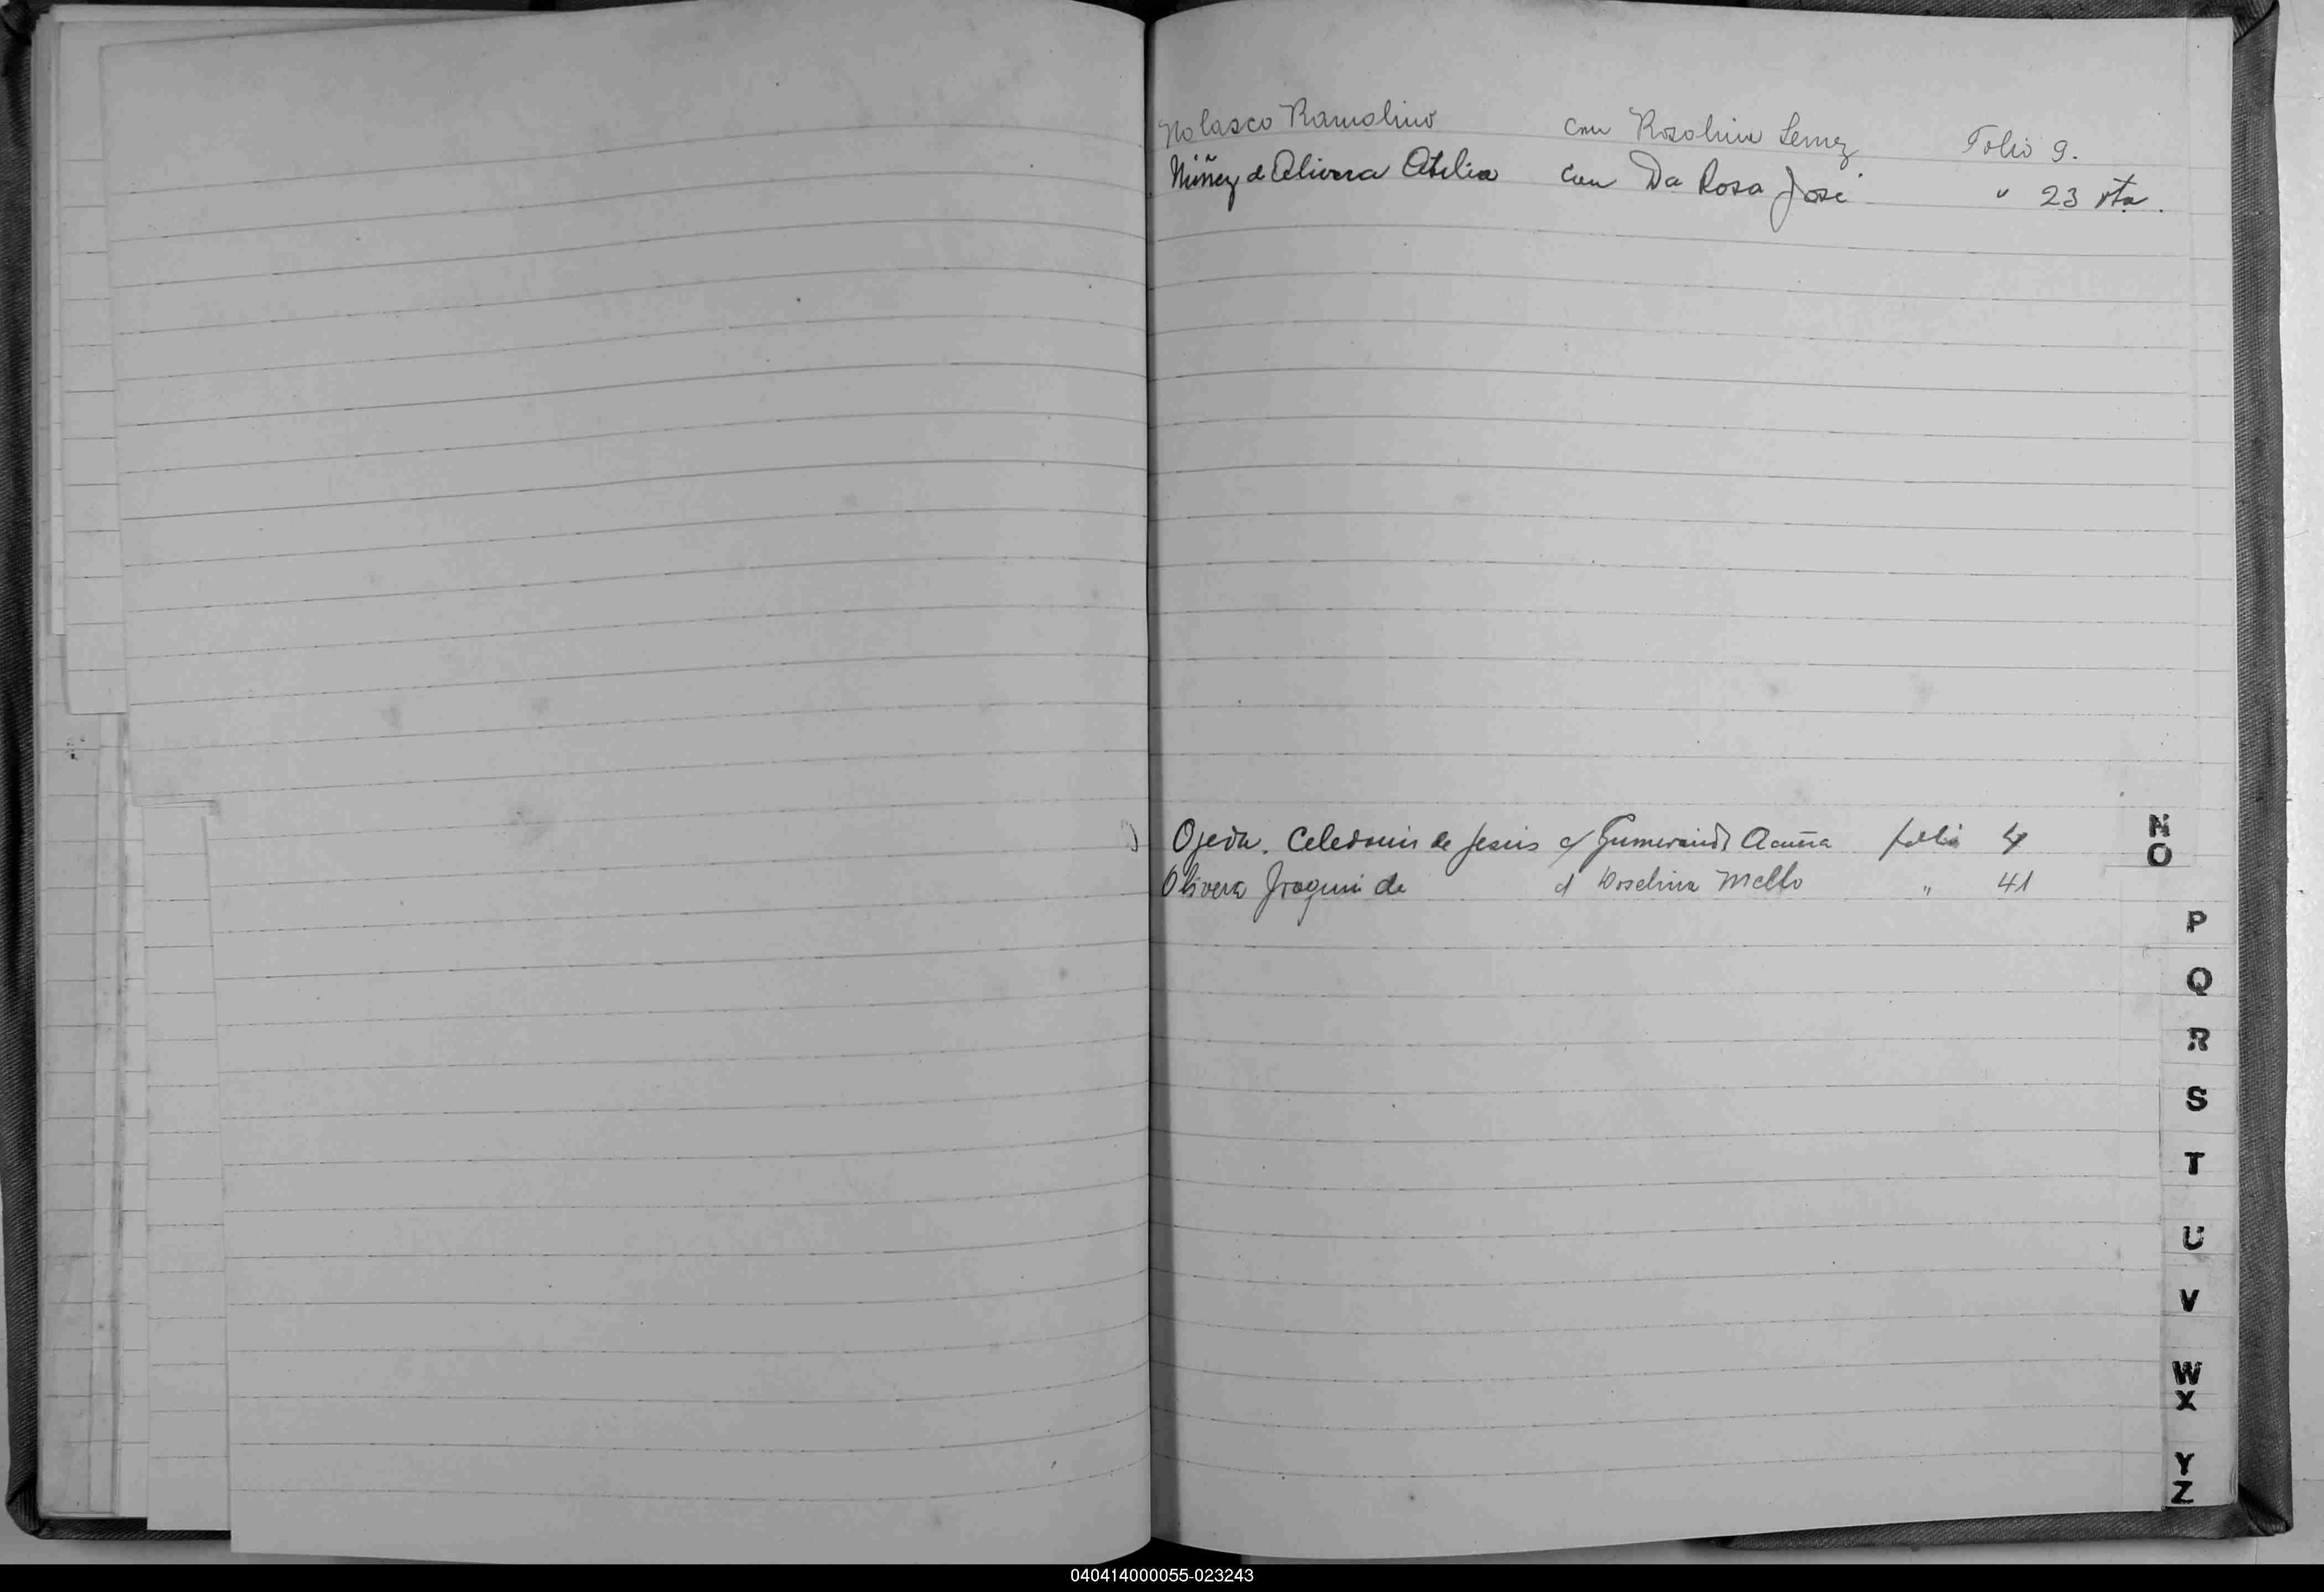 Nolasco Ramolino con Rosolina Lemez Folio 9.
Núñez de Olivera Otilia con Da Rosa José " 23 vta.
Ojeda. Celedonio de Jesús c/ Acuña folio 4
Olivera Joaquin de c/ Roselina Mello " 41
N
O
P
Q
R
S
T
U
V
W
X
Y
Z
040414000055-023243